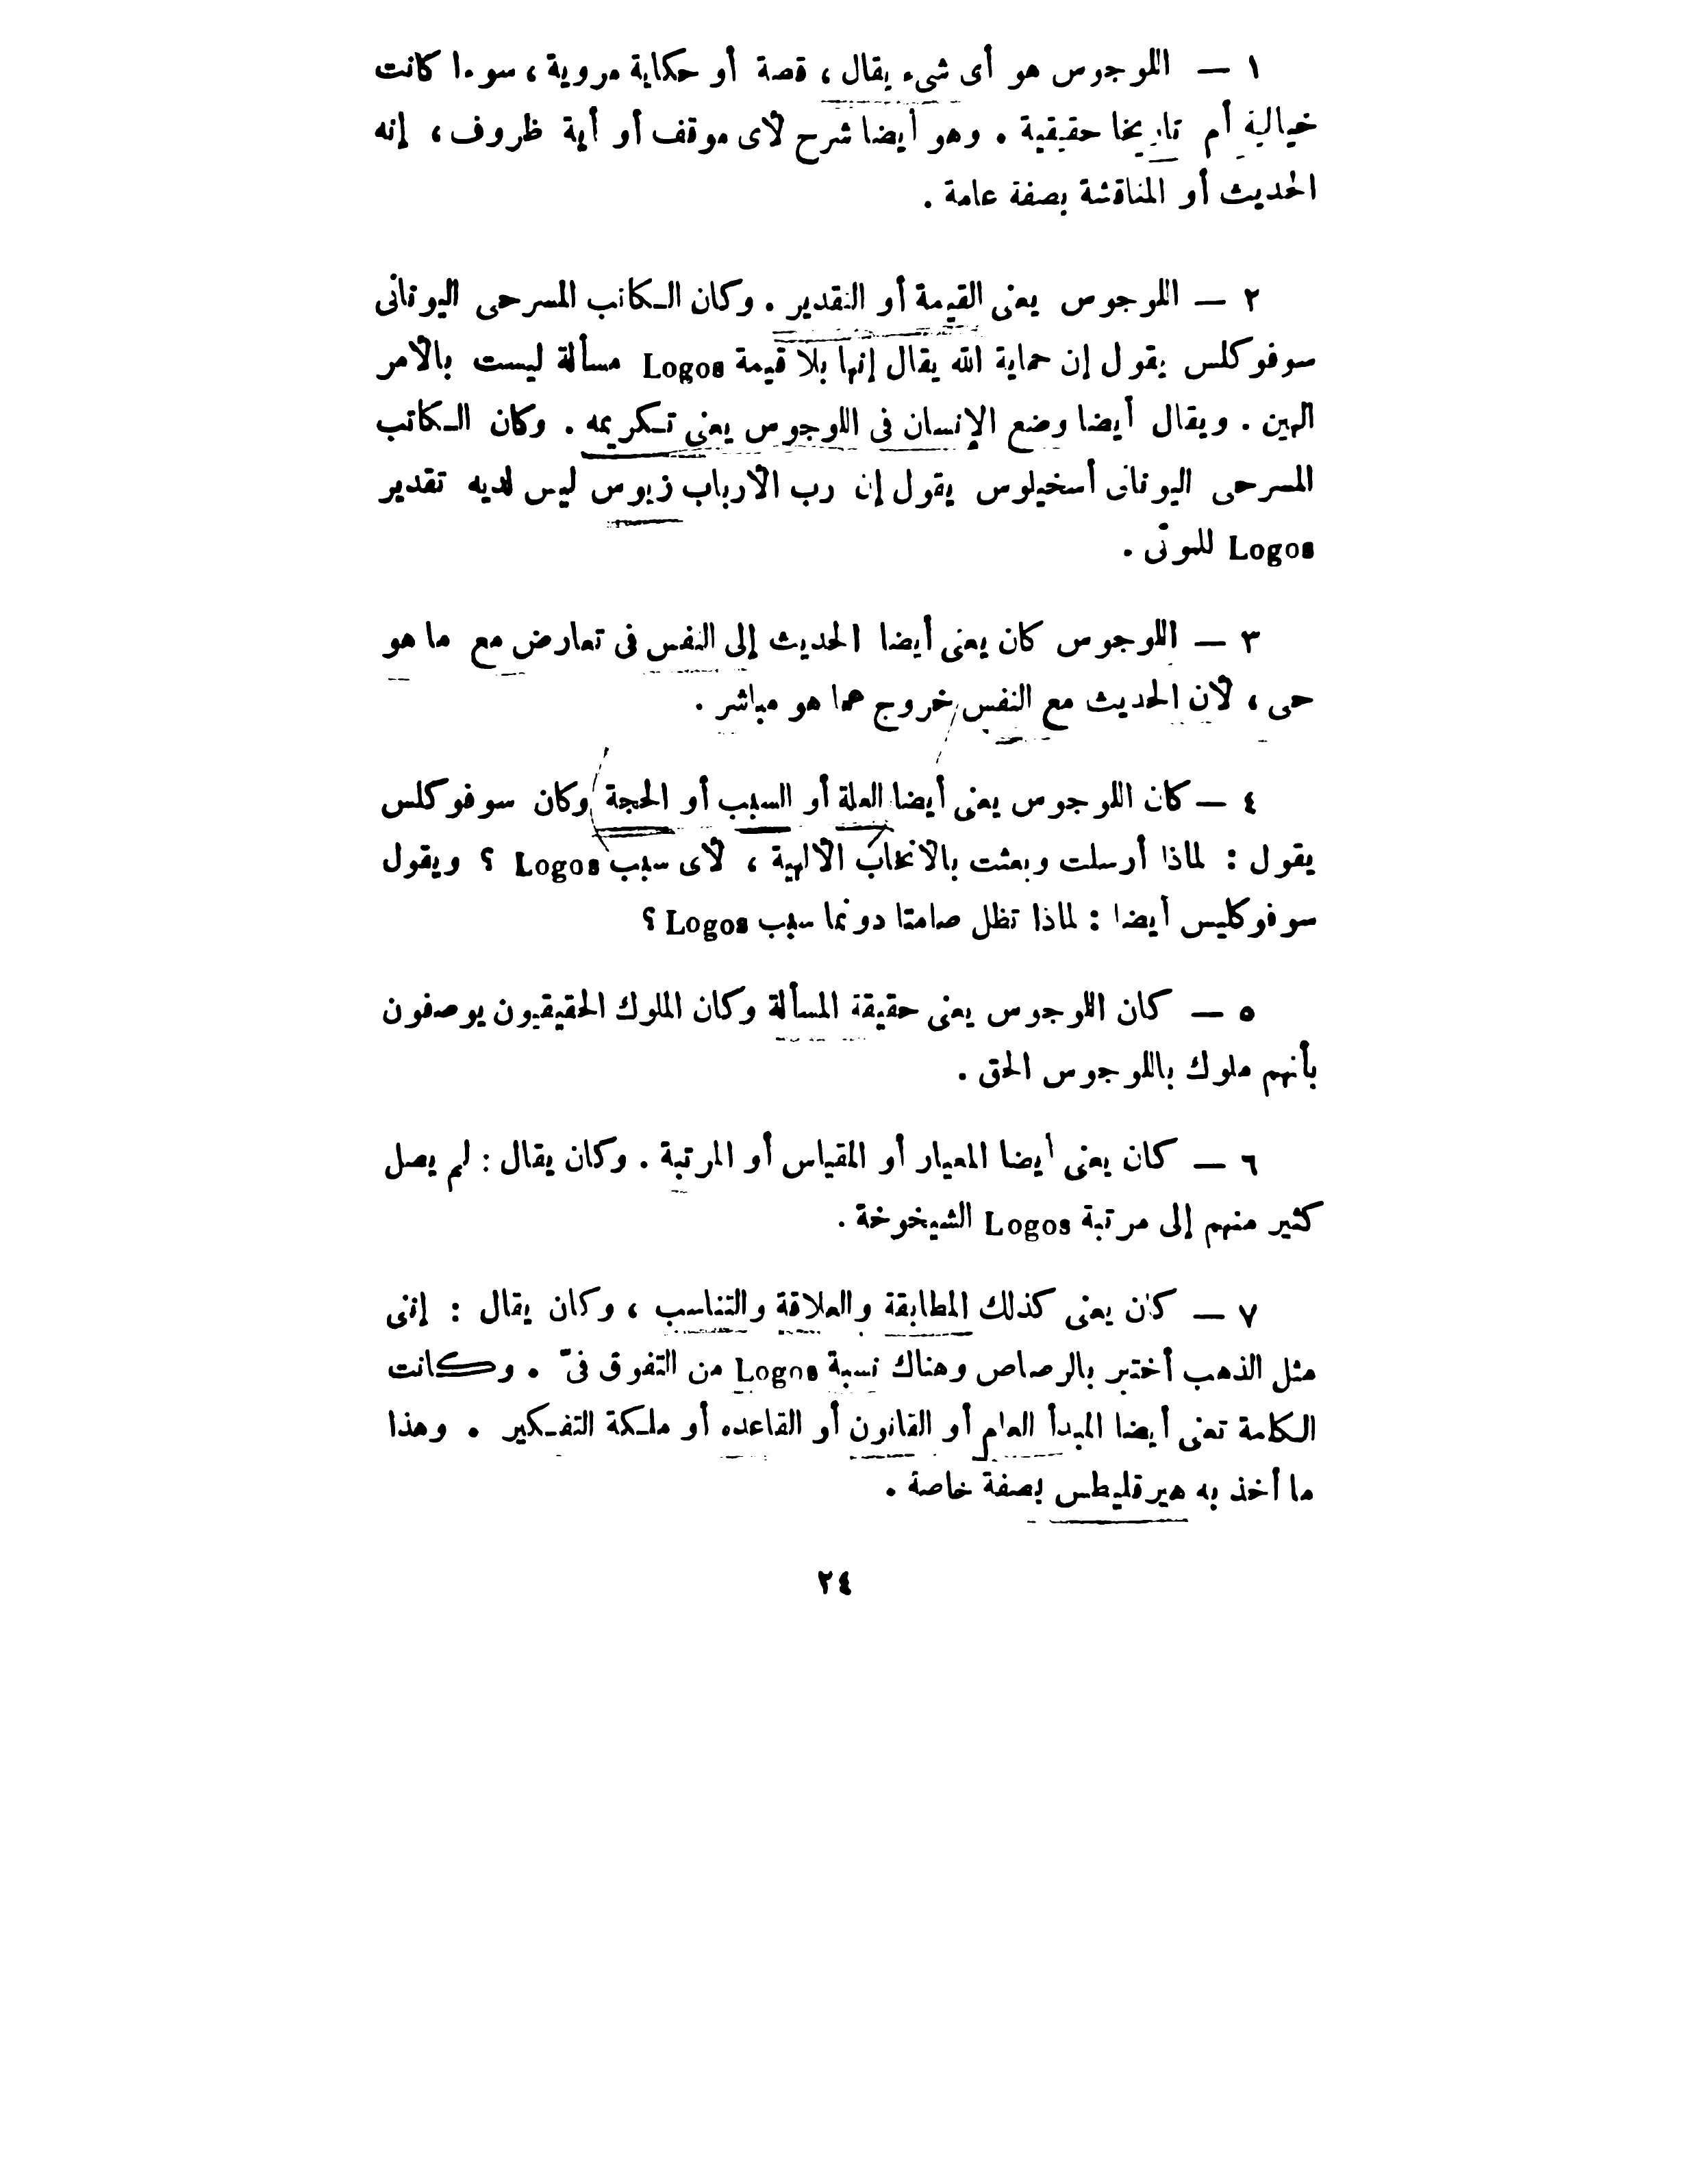 ١ — اللوجوس هو أى شىء يقال ، قصة أو حكاية مروية ، سوءا كانت
خيالية أم تاريخا حقيقية . وهو أيضا شرح لأى موقف أو أية ظروف ، إنه
الحديث أو المناقشة بصفة عامة .
٢ — اللوجوس يعنى القيمة أو التقدير . وكان الكاتب المسرحى اليونانى
سوفوكلس يقول إن حماية الله يقال إنها بلا قيمة Logos مسألة ليست بالأمر
الهين . ويقال أيضا وضع الإنسان فى اللوجوس يعنى تكريمه . وكان الكاتب
المسرحى اليونانى أسخيلوس يقول إن رب الأرباب زيوس ليس لديه تقدير
Logos للموتى .
٣ — اللوجوس كان يعنى أيضا الحديث إلى النفس فى تعارض مع ما هو
حى ، لأن الحديث مع النفس خروج عما هو مباشر .
٤ — كان اللوجوس يعنى أيضا العلة أو السبب أو الحجة وكان سوفوكلس
يقول : لماذا أرسلت وبعثت بالأنخاب الالهية ، لأى سبب Logos ؟ ويقول
سوفوكليس أيضا : لماذا تظل صامتا دونما سبب Logos ؟
٥ — كان اللوجوس يعنى حقيقة المسألة وكان الملوك الحقيقيون يوصفون
بأنهم ملوك باللوجوس الحق .
٦ — كان يعنى أيضا المعيار أو المقياس أو المرتبة . وكان يقال : لم يصل
كثير منهم إلى مرتبة Logos الشيخوخة .
٧ — كان يعنى كذلك المطابقة والعلاقة والتناسب ، وكان يقال : إننى
مثل الذهب أختبر بالرصاص وهناك نسبة Logos من التفوق فىّ . وكانت
الكلمة تعنى أيضا المبدأ العام أو القانون أو القاعده أو ملكة التفكير . وهذا
ما أخذ به هيرقليطس بصفة خاصة .
٢٤